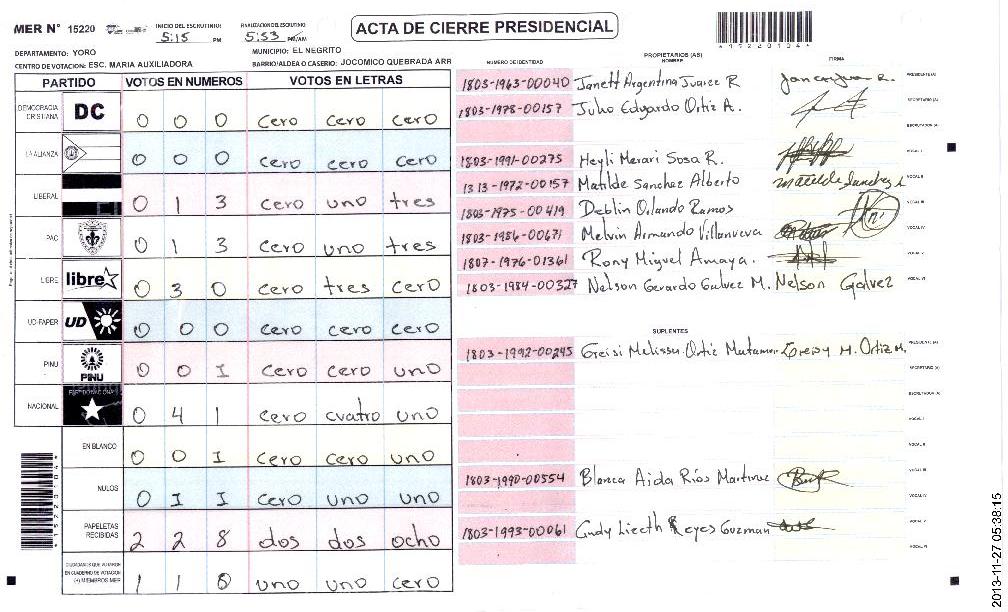 MER N° 15220
INICIO DEL ESCRUTINIO: 5:15 PM
FINALIZACION DEL ESCRUTINIO 5:53 PM/AM
ACTA DE CIERRE PRESIDENCIAL
DEPARTAMENTO: YORO
MUNICIPIO: EL NEGRITO
CENTRO DE VOTACION: ESC. MARIA AUXILIADORA
BARRIO/ALDEA O CASERIO: JOCOMICO QUEBRADA ARR
PARTIDO VOTOS EN NUMEROS VOTOS EN LETRAS
DEMOCRACIA CRISTIANA DC 0 0 0 cero cero cero
LA ALIANZA 0 0 0 cero cero cero
LIBERAL 0 1 3 cero uno tres
PAC 0 1 3 cero uno tres
LIBRE libre 0 3 0 cero tres cero
UD-FAPER UD 0 0 0 cero cero cero
PINU PINU 0 0 1 cero cero uno
NACIONAL 0 4 1 cero cuatro uno
EN BLANCO 0 0 1 cero cero uno
NULOS 0 1 1 cero uno uno
PAPELETAS RECIBIDAS 2 2 8 dos dos ocho
CIUDADANOS QUE VOTARON EN CUADERNO DE VOTACION (+) MIEMBROS MER 1 1 0 uno uno cero
NUMERO DE IDENTIDAD
PROPIETARIOS (AS)
NOMBRE
FIRMA
1803-1963-00040 Janett Argentina Juarez R PRESIDENTE (A)
1803-1978-00157 Julio Edgardo Ortiz A. SECRETARIO (A)
ESCRUTADOR (A)
1803-1991-00275 Heyli Merari Sosa R. VOCAL I
1313-1972-00157 Matilde Sanchez Alberto Matilde Sanchez A VOCAL II
1803-1975-00419 Deblin Orlando Ramos VOCAL III
1803-1986-00671 Melvin Armando Villanueva VOCAL IV
1807-1976-01361 Rony Miguel Amaya. VOCAL V
1803-1984-00327 Nelson Gerardo Galvez M. Nelson Galvez VOCAL VI
SUPLENTES
1803-1992-00245 Greisi Melissa Ortiz Matamor Greisy M. Ortiz M. PRESIDENTE (A)
SECRETARIO (A)
ESCRUTADOR (A)
VOCAL I
VOCAL II
1803-1990-00554 Blanca Aida Ríos Martinez VOCAL III
VOCAL IV
1803-1993-00061 Cindy Lizeth Reyes Guzman VOCAL V
VOCAL VI
2013-11-27 05:38:15